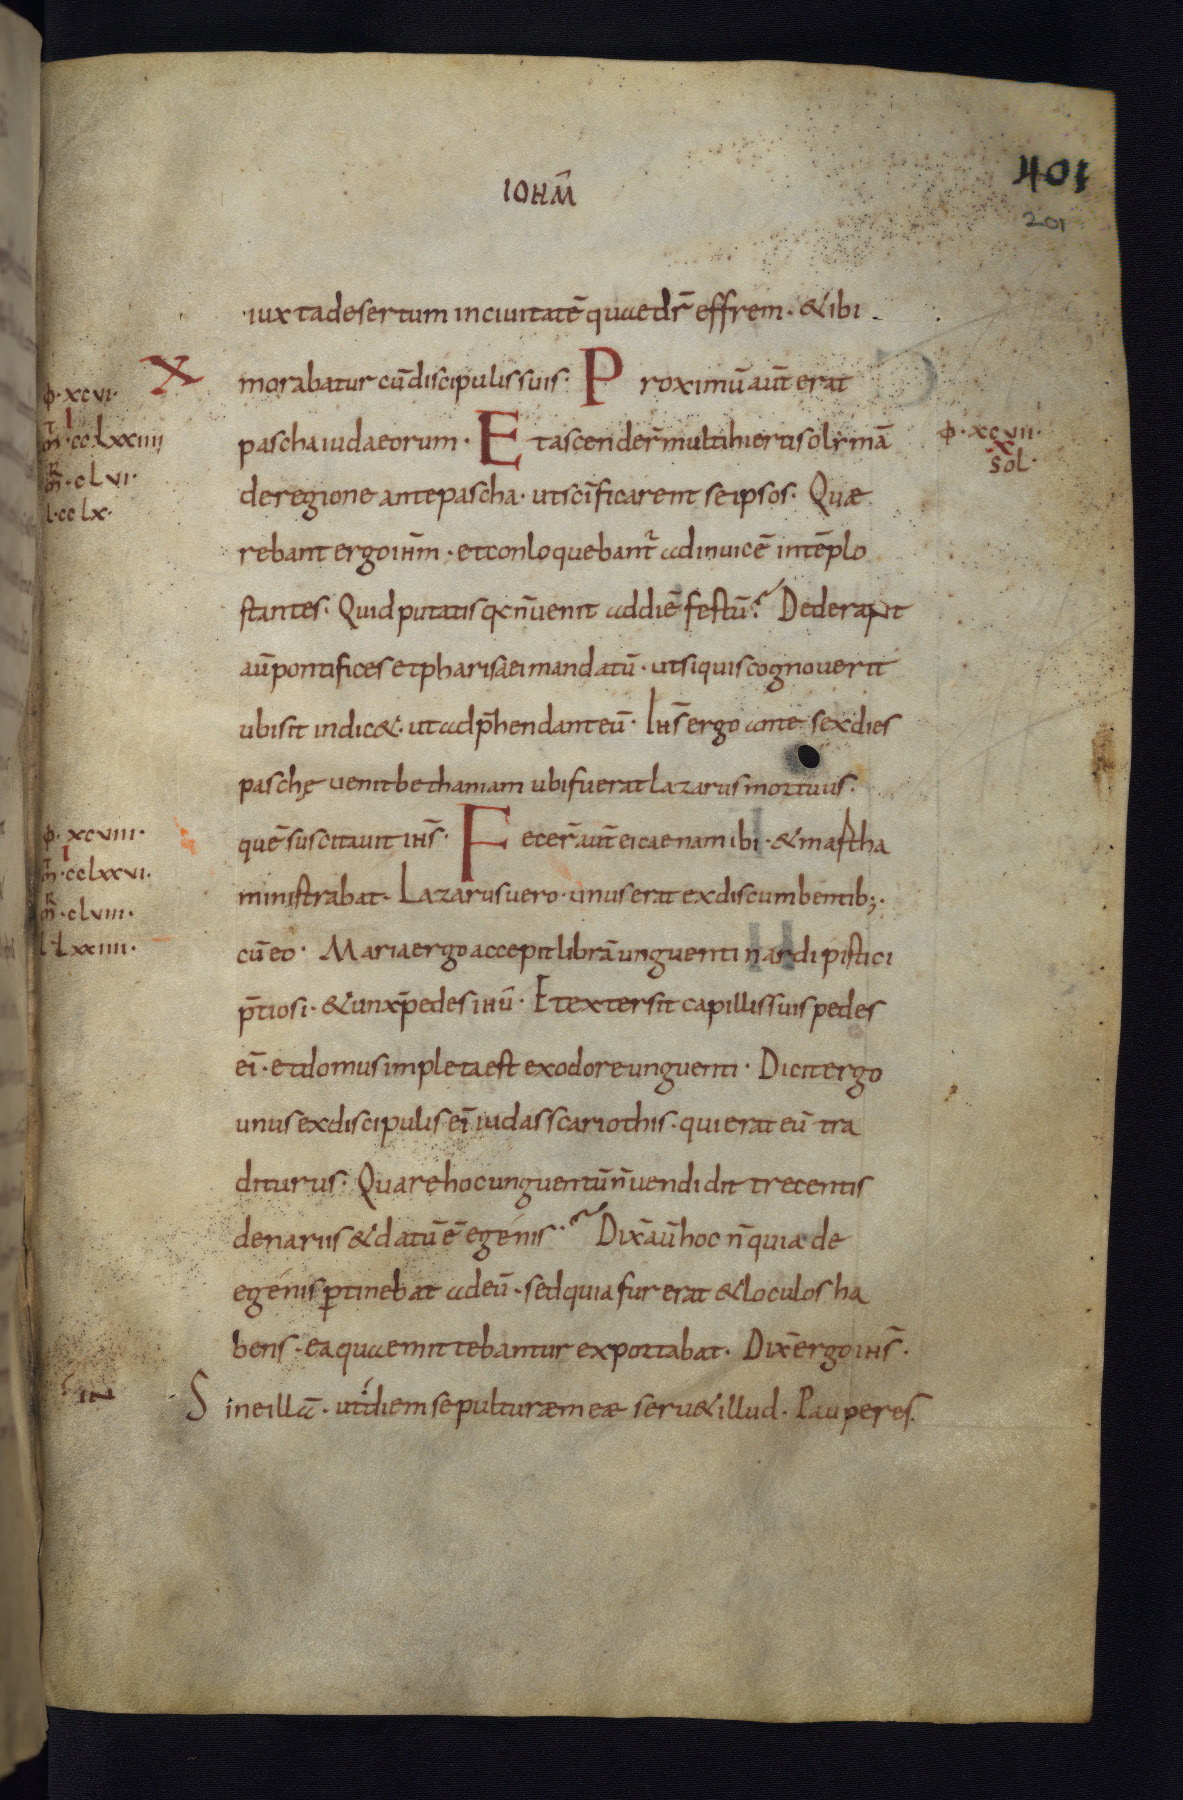 IOHM̅
401
201
iuxta desertum in ciuitatē quae dr̄ effrem · & ibi
morabatur cū discipulis suis · Proximū aut̄ erat
pascha iudaeorum · Et ascender̄ multi hierusolymā
de regione ante pascha · ut sc̄ificarent se ipsos · Quæ
rebant ergo ihm̄ · et conloquebant̄ ad inuicē in tēplo
stantes · Quid putatis q n̄ uenit ad diē festū? Dederant
au̅ pontifices et pharisaei mandatū · ut si quis cognouerit
ubi sit indic& · ut adp̄hendant eū · Ihs̄ ergo ante sex dies
paschę uenit bethaniam ubi fuerat lazarus mortuus ·
quē suscitauit ihs̄ · Fecer̄ aut̄ ei caenam ibi · & martha
ministrabat · Lazarus uero · unus erat ex discumbentib; ·
cū eo · Maria ergo accepit librā unguenti nardi pistici
p̄tiosi · & unx̄ pedes ihū · Et extersit capillis suis pedes
ei̅ · et domus impleta est ex odore unguenti · Dicit ergo
unus ex discipulis ei̅ iudas scariothis · qui erat eū tra
diturus · Quare hoc unguentū n̄ uendidit trecentis
denariis & datū ē egenis? Dix̄ au̅ hoc n̄ quia de
egenis ꝑtinebat ad eū · sed quia fur erat & loculos ha
bens · ea quae mittebantur exportabat · Dix̄ ergo ihs̄ ·
Sine illā · ut i diem sepulturæ meæ seru& illud · Pauperes
X
ф · xcvi ·
m̄ · cclxxiiii
m̄ · clvi ·
l · cclx ·
ф · xcvii ·
x
sol ·
ф · xcviii ·
m̄ · cclxxvi ·
m̄ · clviii ·
l · lxxiiii ·
in